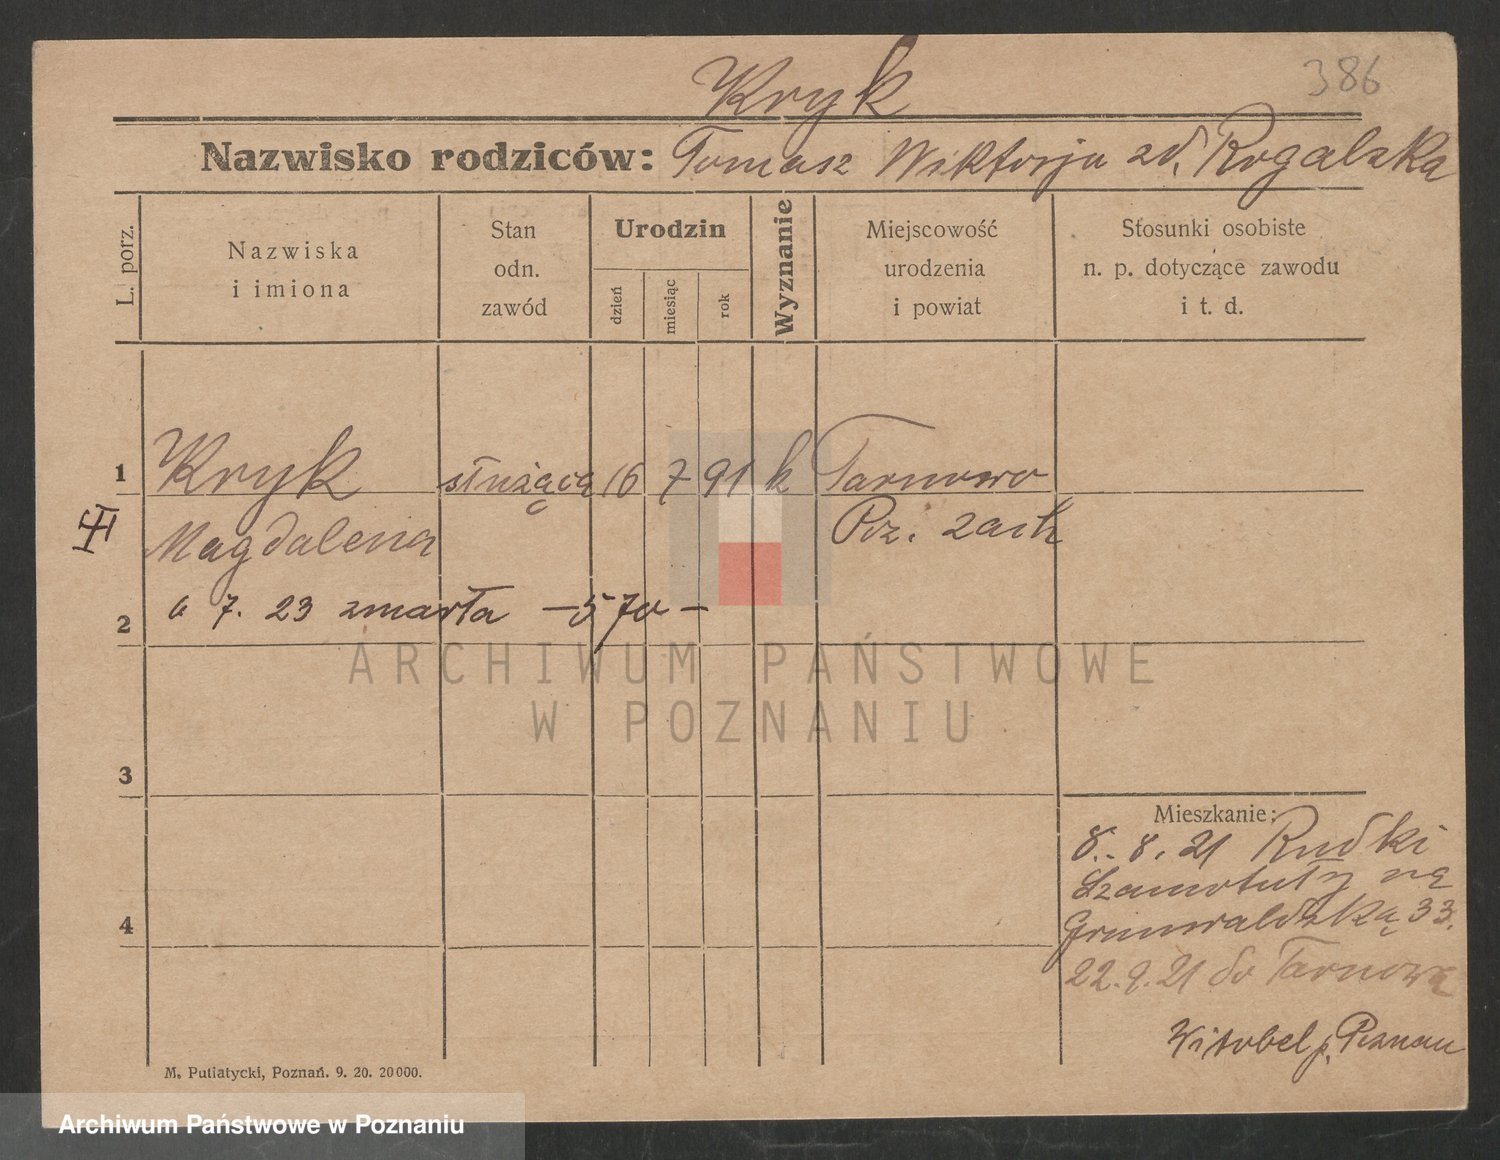 386
Kryk
Nazwisko rodziców: Tomasz Wiktorja zd. Rogalska
L. porz.
Nazwiska
i imiona
Stan
odn.
zawód
Urodzin
dzień
miesiąc
rok
Wyznanie
Miejscowość
urodzenia
i powiat
Stosunki osobiste
n. p. dotyczące zawodu
i t. d.
1 Kryk służąca 16 7 91 k Tarnowo
Magdalena Poz. zach
2 7. 23 zmarła
ARCHIWUM PAŃSTWOWE
W POZNANIU
3
Mieszkanie:
8. 8. 21 Rudki
Szamotuły na
4 Grunwaldzką 33.
22.9.21 do Tarnowa
Witobel p. Poznan
M. Putiatycki, Poznań. 9. 20. 20000.
Archiwum Państwowe w Poznaniu